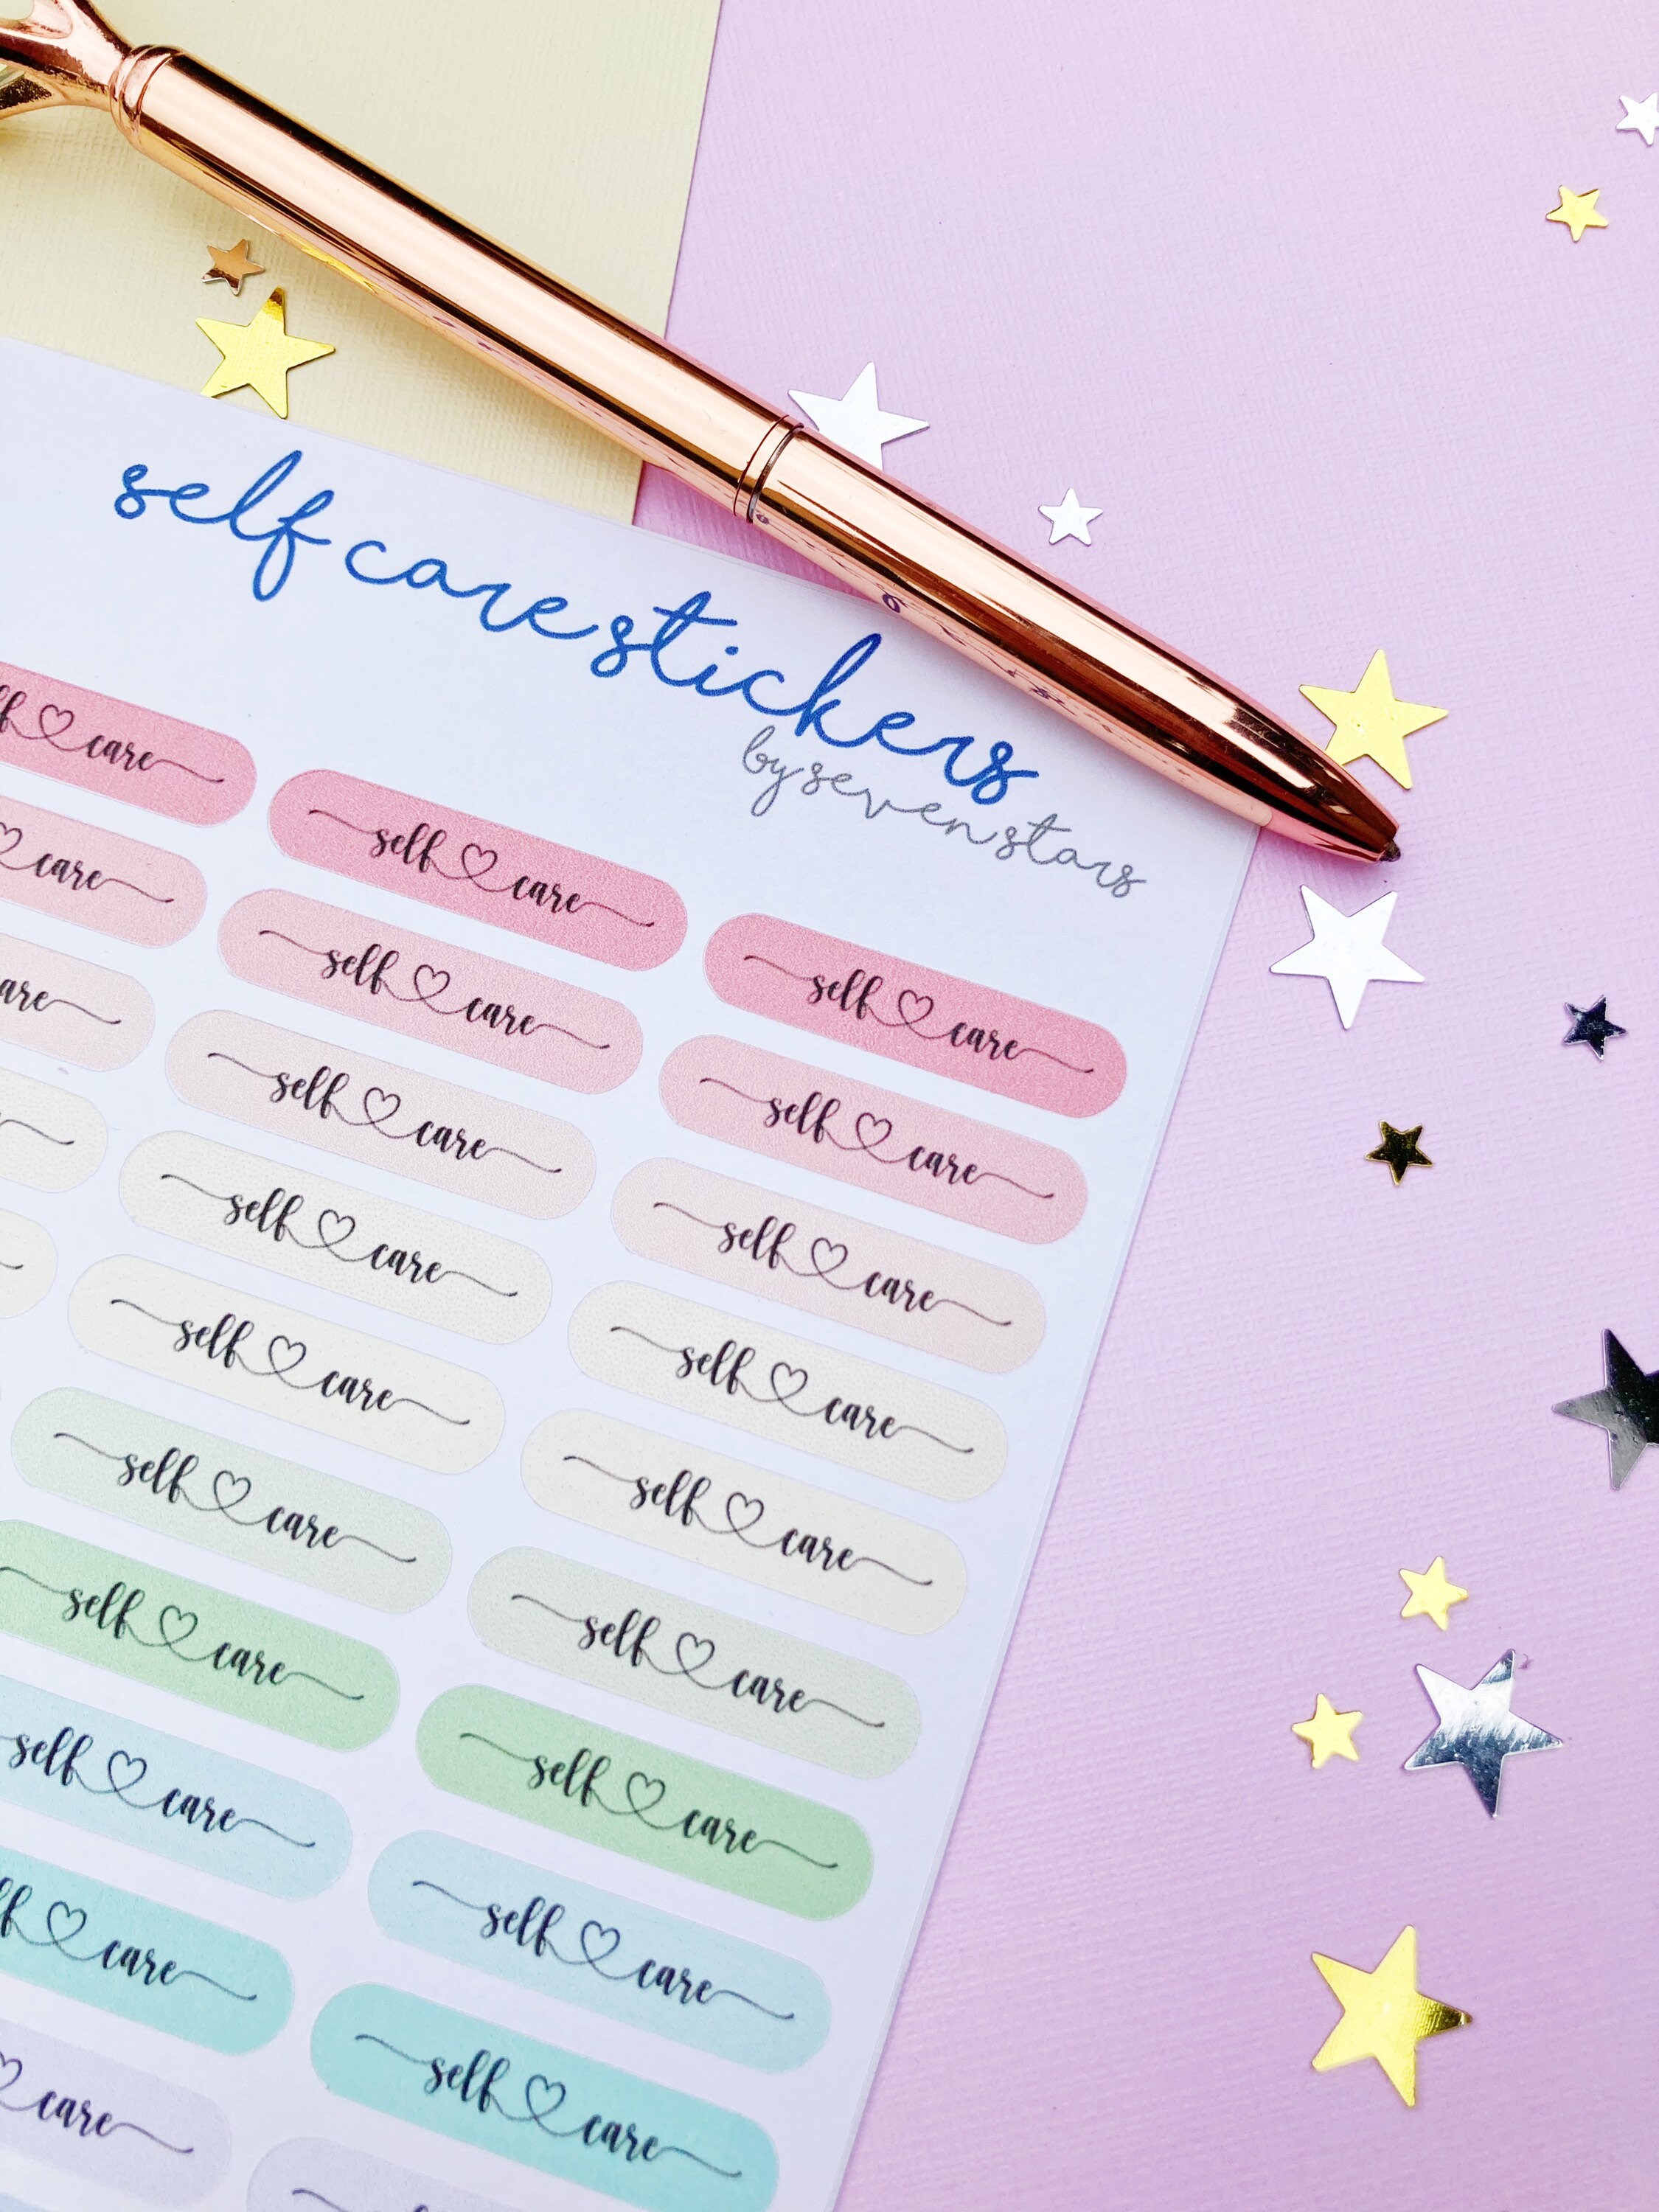 self care stickers
by seven stars
care self care self care
care self care self care
self care self care
self care self care
self care self care
self care self care
self care self care
self care self care
care self care
care